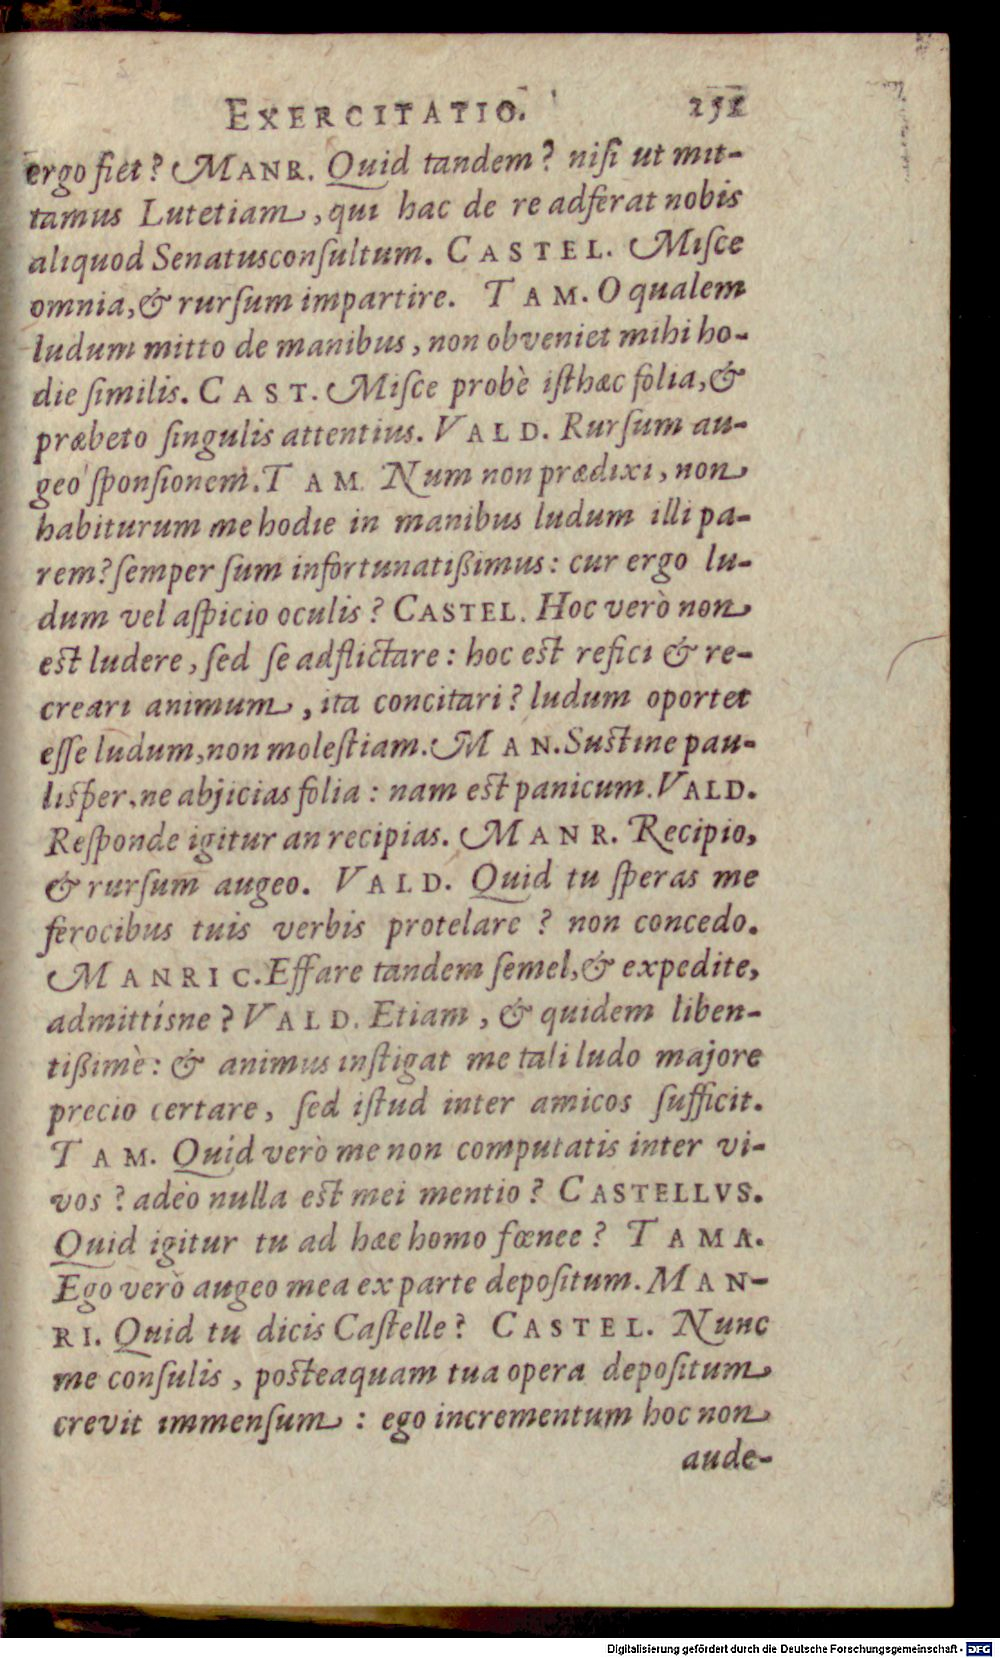 EXERCITATIO. 251
ergo fiet? MANR. Quid tandem? niſi ut mit-
tamus Lutetiam, qui hac de re adferat nobis
aliquod Senatusconſultum. CASTEL. Miſce
omnia, & rurſum impartire. TAM. O qualem
ludum mitto de manibus, non obveniet mihi ho-
die ſimilis. CAST. Miſce probè iſthæc folia, &
præbeto ſingulis attentius. VALD. Rurſum au-
geo ſponſionem. TAM. Num non prædixi, non
habiturum me hodie in manibus ludum illi pa-
rem? ſemper ſum infortunatißimus: cur ergo lu-
dum vel aſpicio oculis? CASTEL. Hoc verò non
eſt ludere, ſed ſe adflictare: hoc eſt refici & re-
creari animum, ita concitari? ludum oportet
eſſe ludum, non moleſtiam. MAN. Suſtine pau-
liſper, ne abjicias folia: nam eſt panicum. VALD.
Reſponde igitur an recipias. MANR. Recipio,
& rurſum augeo. VALD. Quid tu ſperas me
ferocibus tuis verbis protelare? non concedo.
MANRIC. Effare tandem ſemel, & expedite,
admittisne? VALD. Etiam, & quidem liben-
tißimè: & animus inſtigat me tali ludo majore
precio certare, ſed iſtud inter amicos ſufficit.
TAM. Quid verò me non computatis inter vi-
vos? adeò nulla eſt mei mentio? CASTELLVS.
Quid igitur tu ad hæc homo fœnee? TAMA.
Ego verò augeo mea ex parte depoſitum. MAN-
RI. Quid tu dicis Caſtelle? CASTEL. Nunc
me conſulis, poſteaquam tua opera depoſitum
crevit immenſum: ego incrementum hoc non
aude-
Digitalisierung gefördert durch die Deutsche Forschungsgemeinschaft - DFG